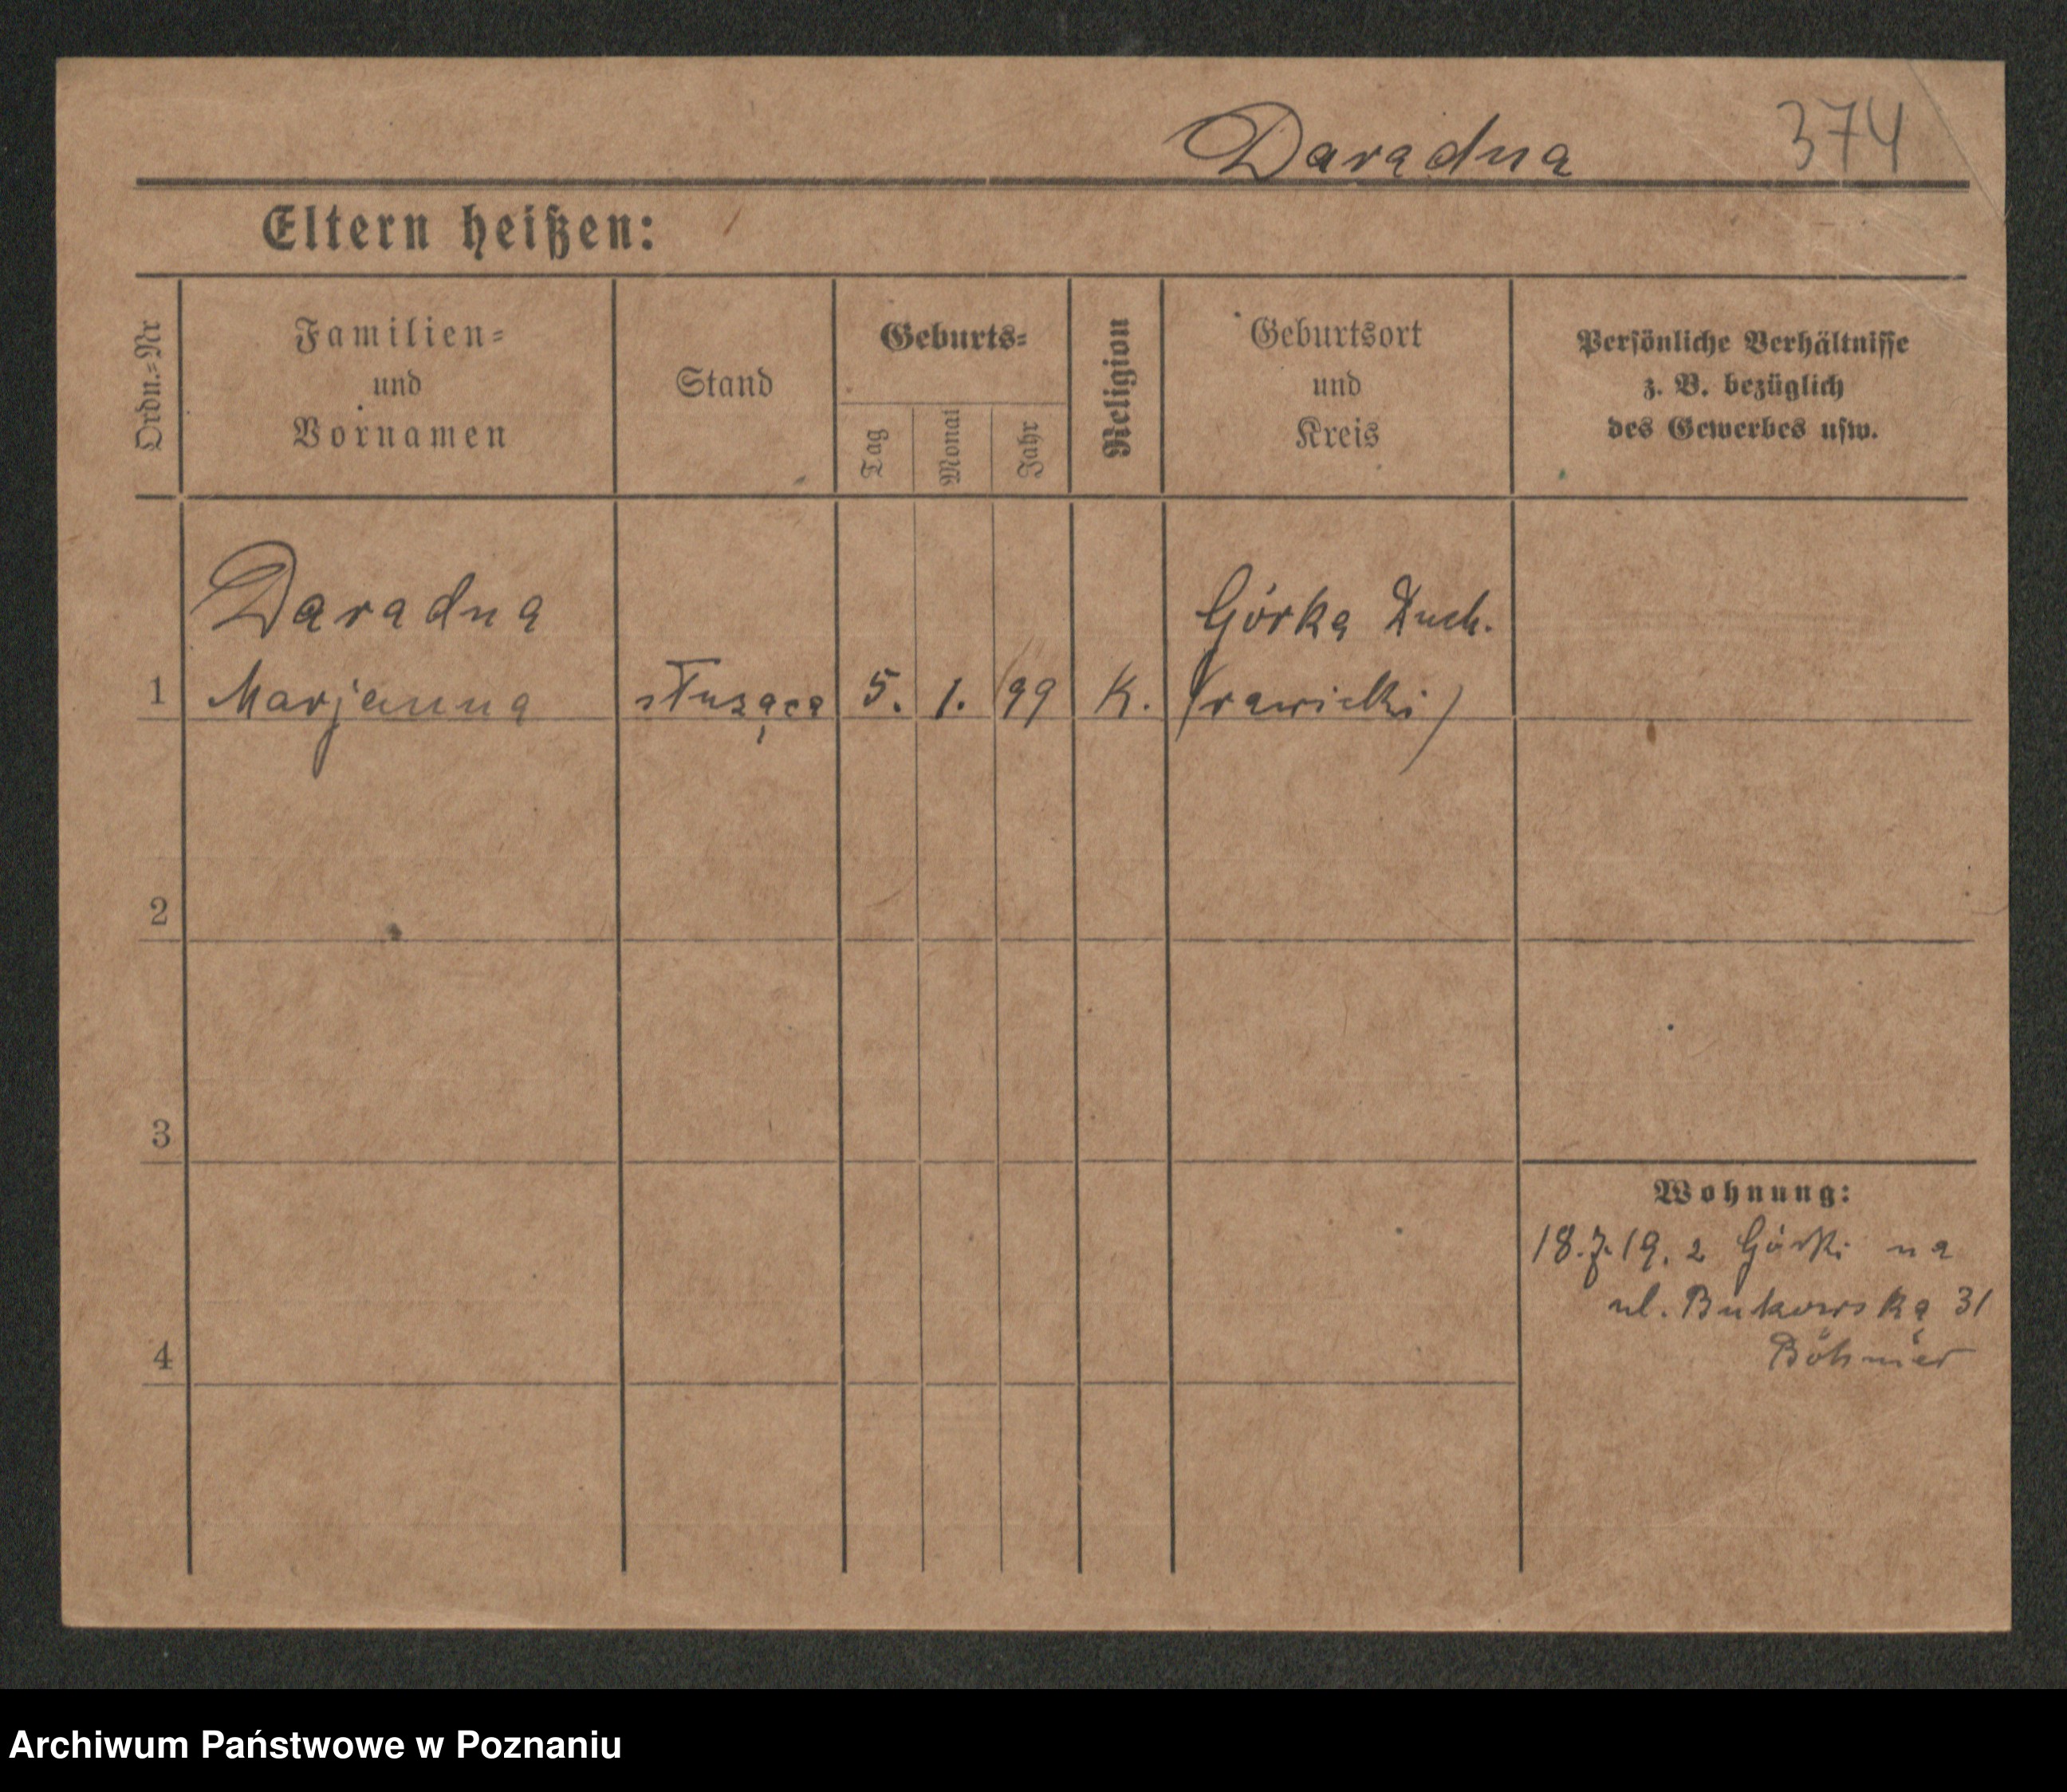 Daradna 374
Eltern heißen:
Ordn.-Nr
Familien-
und
Vornamen
Stand
Geburts-
Tag
Monat
Jahr
Religion
Geburtsort
und
Kreis
Persönliche Verhältnisse
z. B. bezüglich
des Gewerbes usw.
Daradna Górka Duch.
1 Marjanna służąca 5. 1. 99 K. (rawicki)
2
3
4
Wohnung:
18.7.19. z Górki na
ul. Bukowską 31
Böhmer
Archiwum Państwowe w Poznaniu